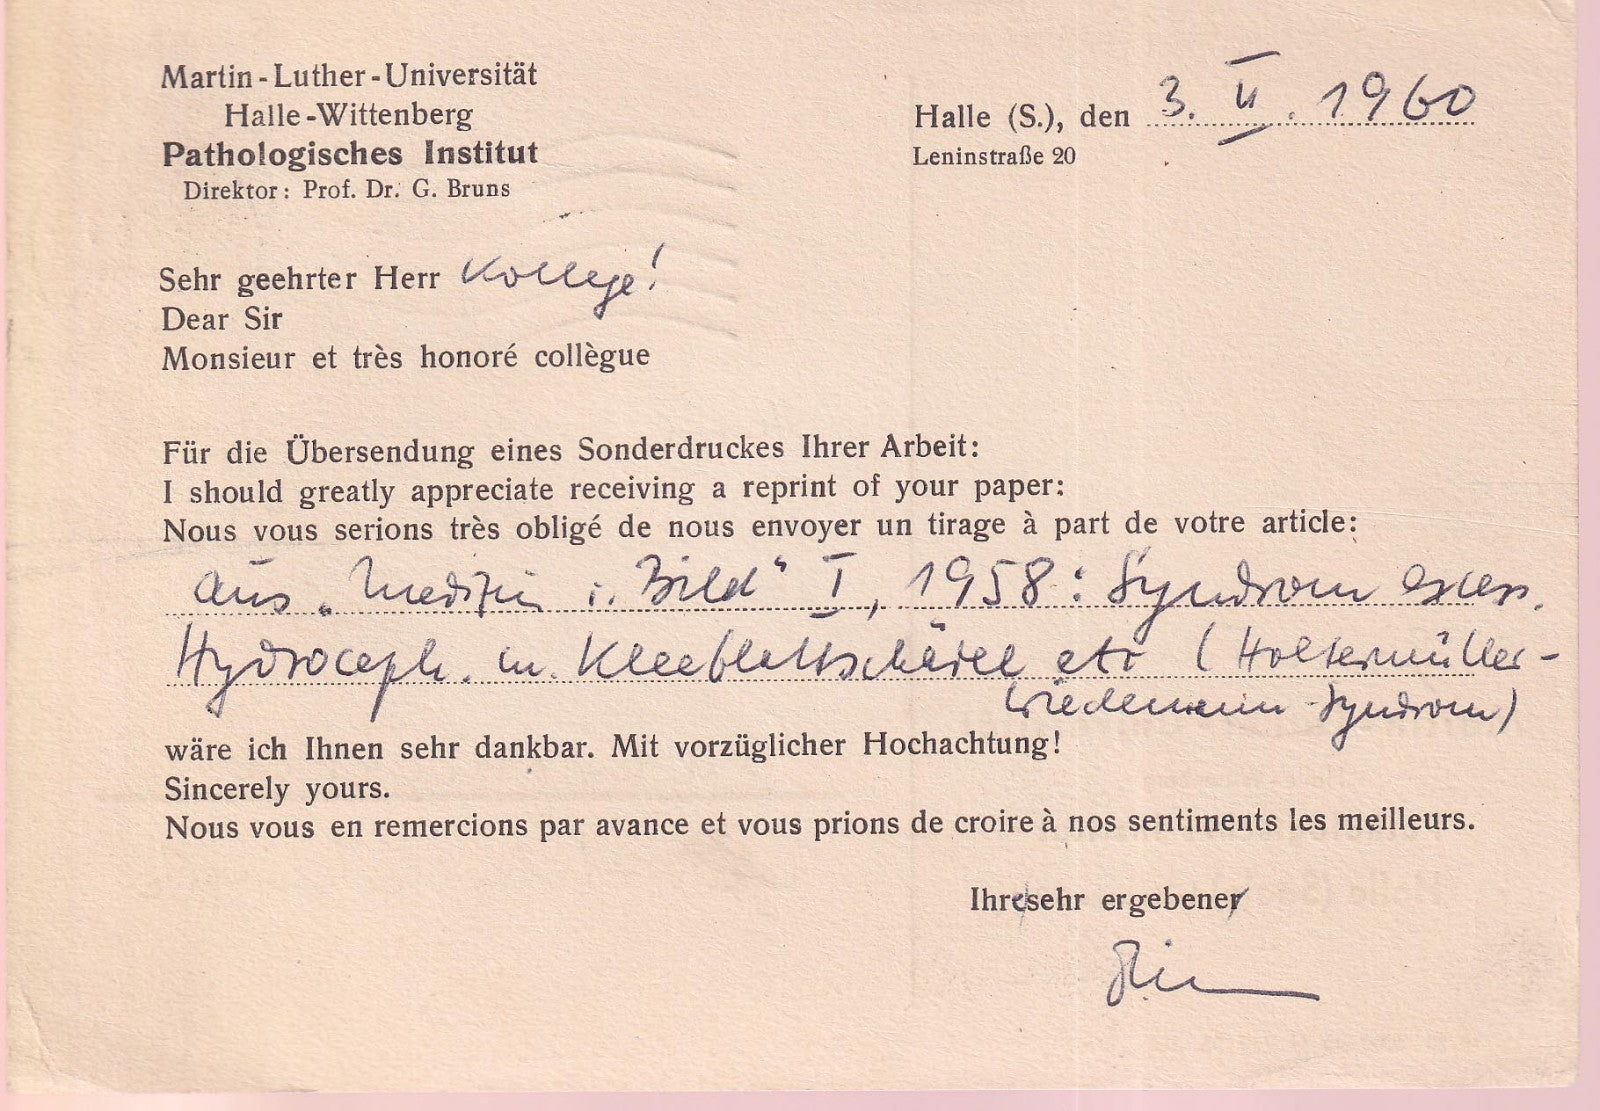 Martin-Luther-Universität
Halle-Wittenberg
Pathologisches Institut
Direktor: Prof. Dr. G. Bruns
Halle (S.), den 3. II. 1960
Leninstraße 20
Sehr geehrter Herr Kollege!
Dear Sir
Monsieur et très honoré collègue
Für die Übersendung eines Sonderdruckes Ihrer Arbeit:
I should greatly appreciate receiving a reprint of your paper:
Nous vous serions très obligé de nous envoyer un tirage à part de votre article:
aus „Medizin i. Bild" I, 1958: Syndrom
Hydroceph. m. Kleeblattschädel etc (Holtermüller-
Wiedemann-Syndrom)
wäre ich Ihnen sehr dankbar. Mit vorzüglicher Hochachtung!
Sincerely yours.
Nous vous en remercions par avance et vous prions de croire à nos sentiments les meilleurs.
Ihre sehr ergebener